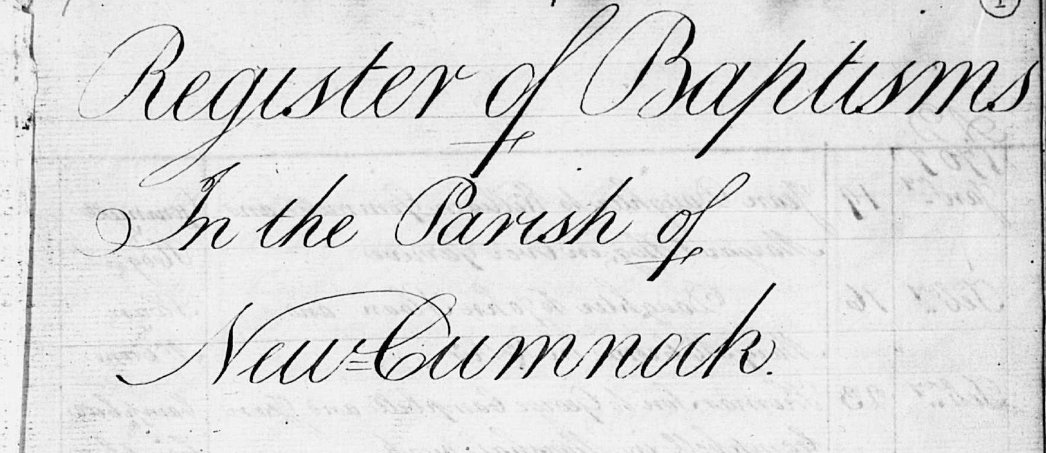 Register of Baptisms
In the Parish of
New=Cumnock.